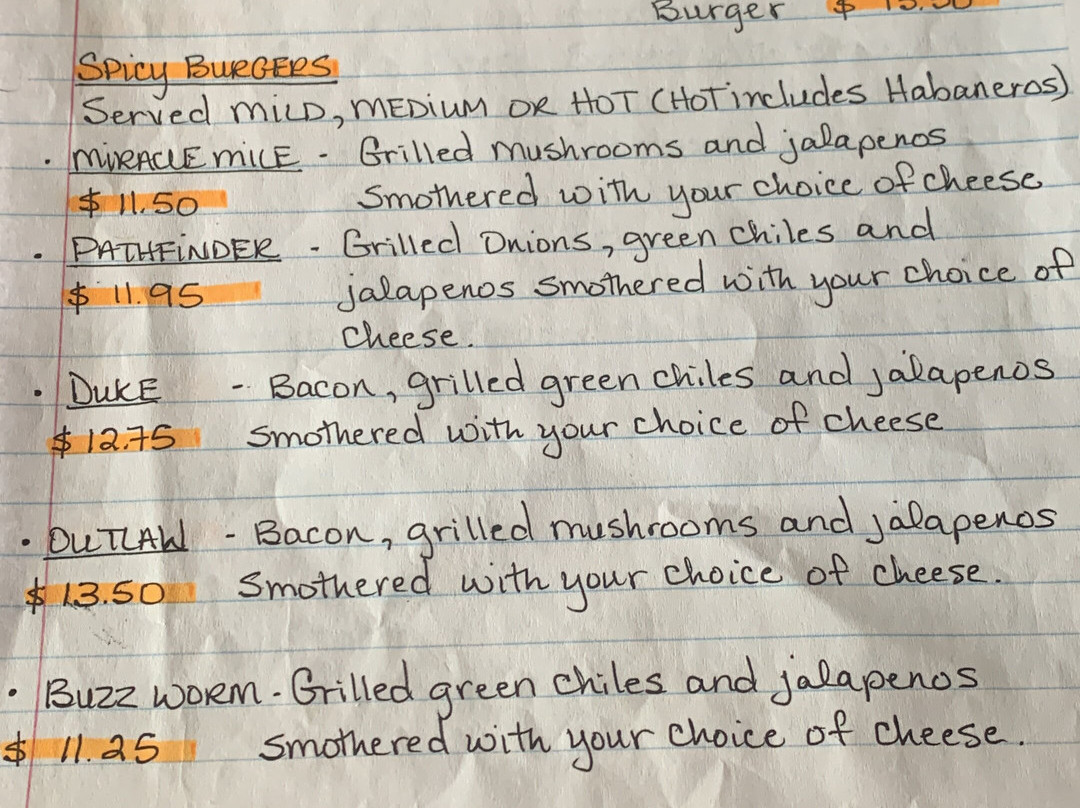 Burger $
SPICY BURGERS
Served MILD, MEDIUM OR HOT (HOT includes Habaneros)
. MIRACLE MILE - Grilled mushrooms and jalapenos
$ 11.50 Smothered with your choice of cheese
. PATHFINDER - Grilled Onions, green chiles and
$ 11.95 jalapenos smothered with your choice of
Cheese.
. DUKE - Bacon, grilled green chiles and jalapenos
$ 12.75 Smothered with your choice of cheese
. OUTLAW - Bacon, grilled mushrooms and jalapenos
$ 13.50 Smothered with your choice of cheese.
. BUZZ WORM - Grilled green chiles and jalapenos
$ 11.25 smothered with your choice of cheese.